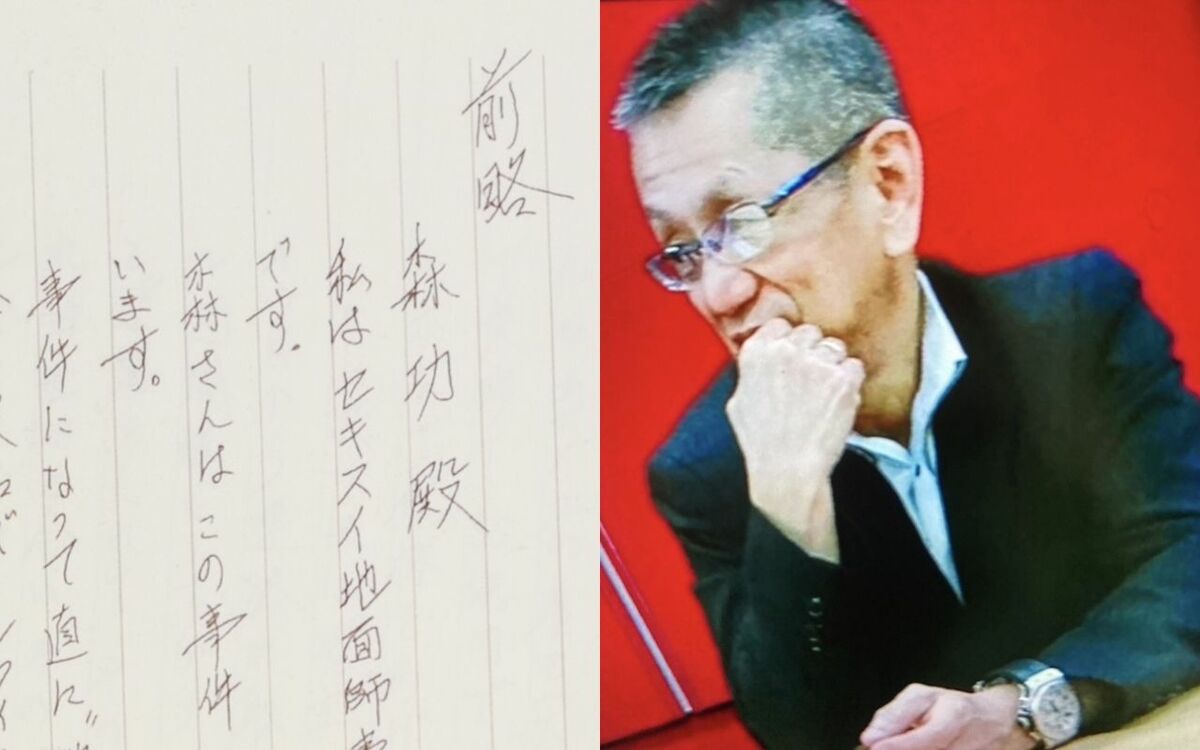 前略
森功殿
私はセキスイ地面師事
です。
森さんはこの事件
います。
事件になって直に